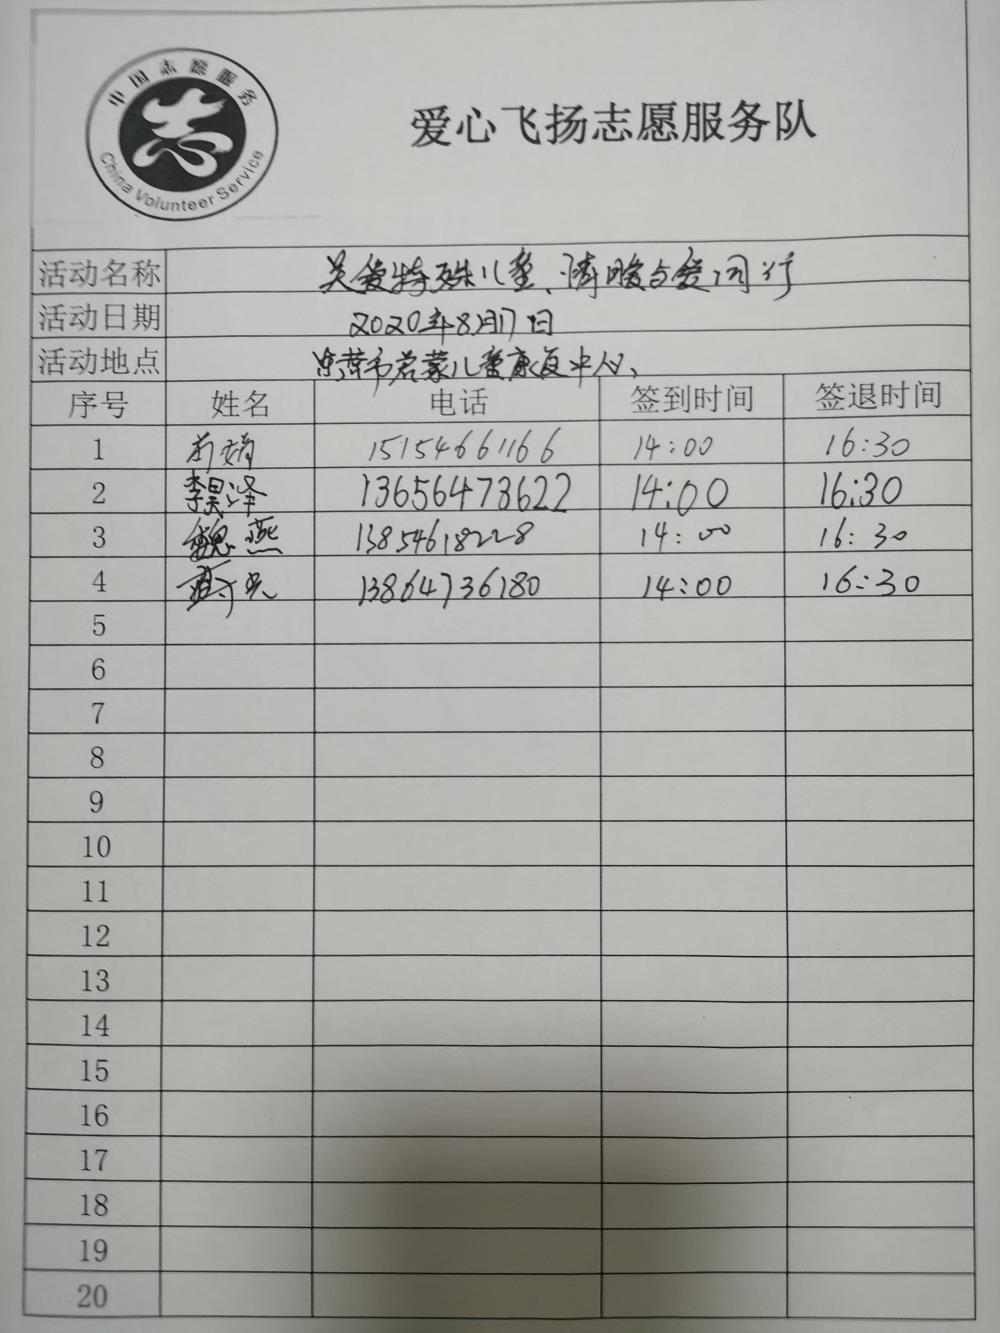 中国志愿服务
China Volunteer Service
爱心飞扬志愿服务队
活动名称 关爱特殊儿童、情暖与爱同行
活动日期 2020年8月17日
活动地点 启蒙儿童康复中心、
序号 姓名 电话 签到时间 签退时间
1 15154661166 14:00 16:30
2 李昊泽 13656473622 14:00 16:30
3 魏燕 13854618228 14:00 16:30
4 13864736180 14:00 16:30
5
6
7
8
9
10
11
12
13
14
15
16
17
18
19
20